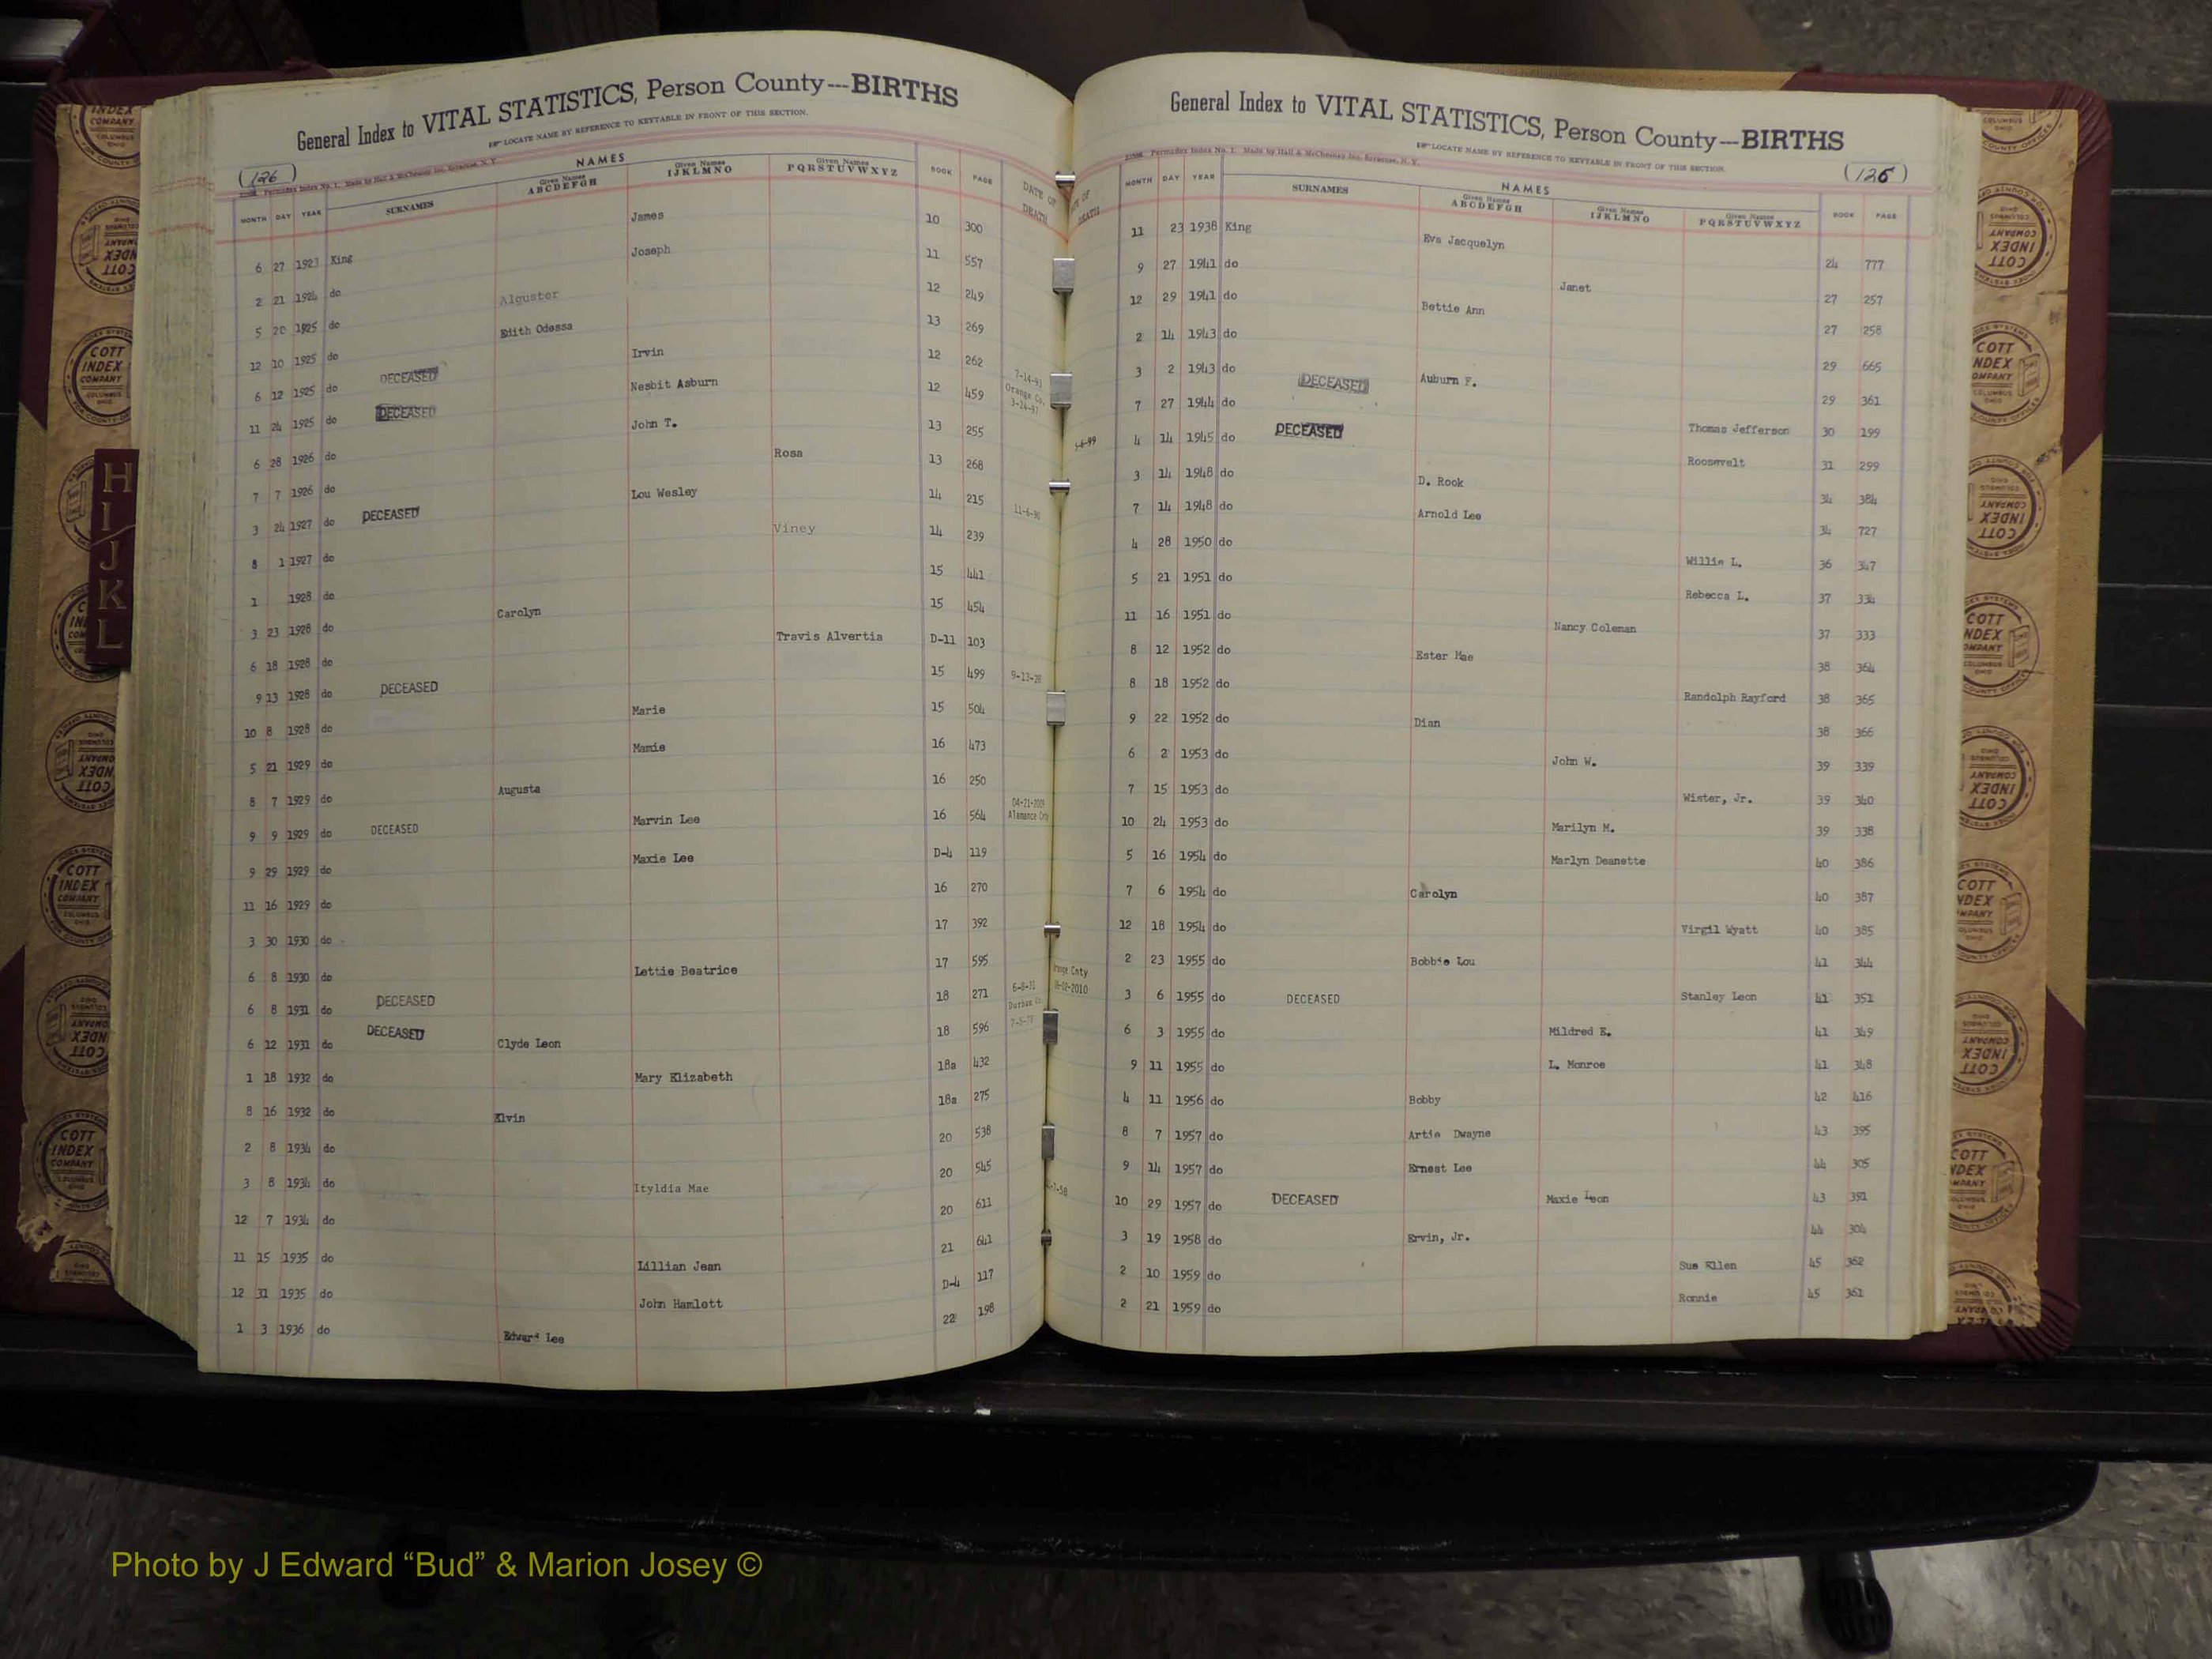 General Index to VITAL STATISTICS, Person County---BIRTHS
LOCATE NAME BY REFERENCE TO KEYTABLE IN FRONT OF THIS SECTION.
(126)
Permadex Index No. 1. Made by Hall & McChesney Inc. Syracuse, N. Y.
NAMES
MONTH DAY YEAR SURNAMES Given Names ABCDEFGH Given Names IJKLMNO Given Names PQRSTUVWXYZ BOOK PAGE DATE OF DEATH
6 27 1923 King James 10 300
2 21 1924 do Joseph 11 557
5 20 1925 do Alguster 12 249
12 10 1925 do Edith Odessa 13 269
6 12 1925 do DECEASED Irvin 12 262 7-14-93 Orange Co.
11 24 1925 do DECEASED Nesbit Asburn 12 459 3-24-97
6 28 1926 do John T. 13 255
7 7 1926 do Rosa 13 268
3 24 1927 do DECEASED Lou Wesley 14 215 11-6-90
8 1 1927 do Viney 14 239
1 1928 do 15 441
3 23 1928 do Carolyn 15 454
6 18 1928 do Travis Alvertia D-11 103
9 13 1928 do DECEASED 15 499 9-13-28
10 8 1928 do Marie 15 504
5 21 1929 do Mamie 16 473
8 7 1929 do Augusta 16 250
9 9 1929 do DECEASED Marvin Lee 16 564 04-21-2009 Alamance Cnty
9 29 1929 do Maxie Lee D-4 119
11 16 1929 do 16 270
3 30 1930 do 17 392
6 8 1930 do Lettie Beatrice 17 595
6 8 1931 do DECEASED 18 271 6-8-31
6 12 1931 do DECEASED Clyde Leon 18 596 Durham Co. 7-5-78
1 18 1932 do Mary Elizabeth 18a 432
8 16 1932 do Elvin 18a 275
2 8 1934 do 20 538
3 8 1934 do Ityldia Mae 20 545
12 7 1934 do 20 611
11 15 1935 do Lillian Jean 21 641
12 31 1935 do John Hamlett D-4 117
1 3 1936 do Edward Lee 22 198
General Index to VITAL STATISTICS, Person County---BIRTHS
LOCATE NAME BY REFERENCE TO KEYTABLE IN FRONT OF THIS SECTION.
(126)
Permadex Index No. 1. Made by Hall & McChesney Inc. Syracuse, N. Y.
NAMES
DEATH MONTH DAY YEAR SURNAMES Given Names ABCDEFGH Given Names IJKLMNO Given Names PQRSTUVWXYZ BOOK PAGE
11 23 1938 King Eva Jacquelyn 24 777
9 27 1941 do Janet 27 257
12 29 1941 do Bettie Ann 27 258
2 14 1943 do 29 665
3 2 1943 do DECEASED Auburn F. 29 361
7 27 1944 do Thomas Jefferson 30 199
4 14 1945 do DECEASED Roosevelt 31 299
3 14 1948 do D. Rook 34 384
7 14 1948 do Arnold Lee 34 727
4 28 1950 do Willie L. 36 347
5 21 1951 do Rebecca L. 37 334
11 16 1951 do Nancy Coleman 37 333
8 12 1952 do Ester Mae 38 364
8 18 1952 do Randolph Rayford 38 365
9 22 1952 do Dian 38 366
6 2 1953 do John W. 39 339
7 15 1953 do Wister, Jr. 39 340
10 24 1953 do Marilyn M. 39 338
5 16 1954 do Marlyn Deanette 40 386
7 6 1954 do Carolyn 40 387
12 18 1954 do Virgil Wyatt 40 385
2 23 1955 do Bobbie Lou 41 344
3 6 1955 do DECEASED Stanley Leon 41 351
6 3 1955 do Mildred E. 41 349
9 11 1955 do L. Monroe 41 348
4 11 1956 do Bobby 42 416
8 7 1957 do Artie Dwayne 43 395
9 14 1957 do Ernest Lee 44 305
10 29 1957 do DECEASED Maxie Leon 43 391
3 19 1958 do Ervin, Jr. 44 304
2 10 1959 do Sue Ellen 45 362
2 21 1959 do Ronnie 45 361
H
I
J
K
L
COTT
INDEX
COMPANY
COLUMBUS
OHIO
Photo by J Edward “Bud” & Marion Josey ©